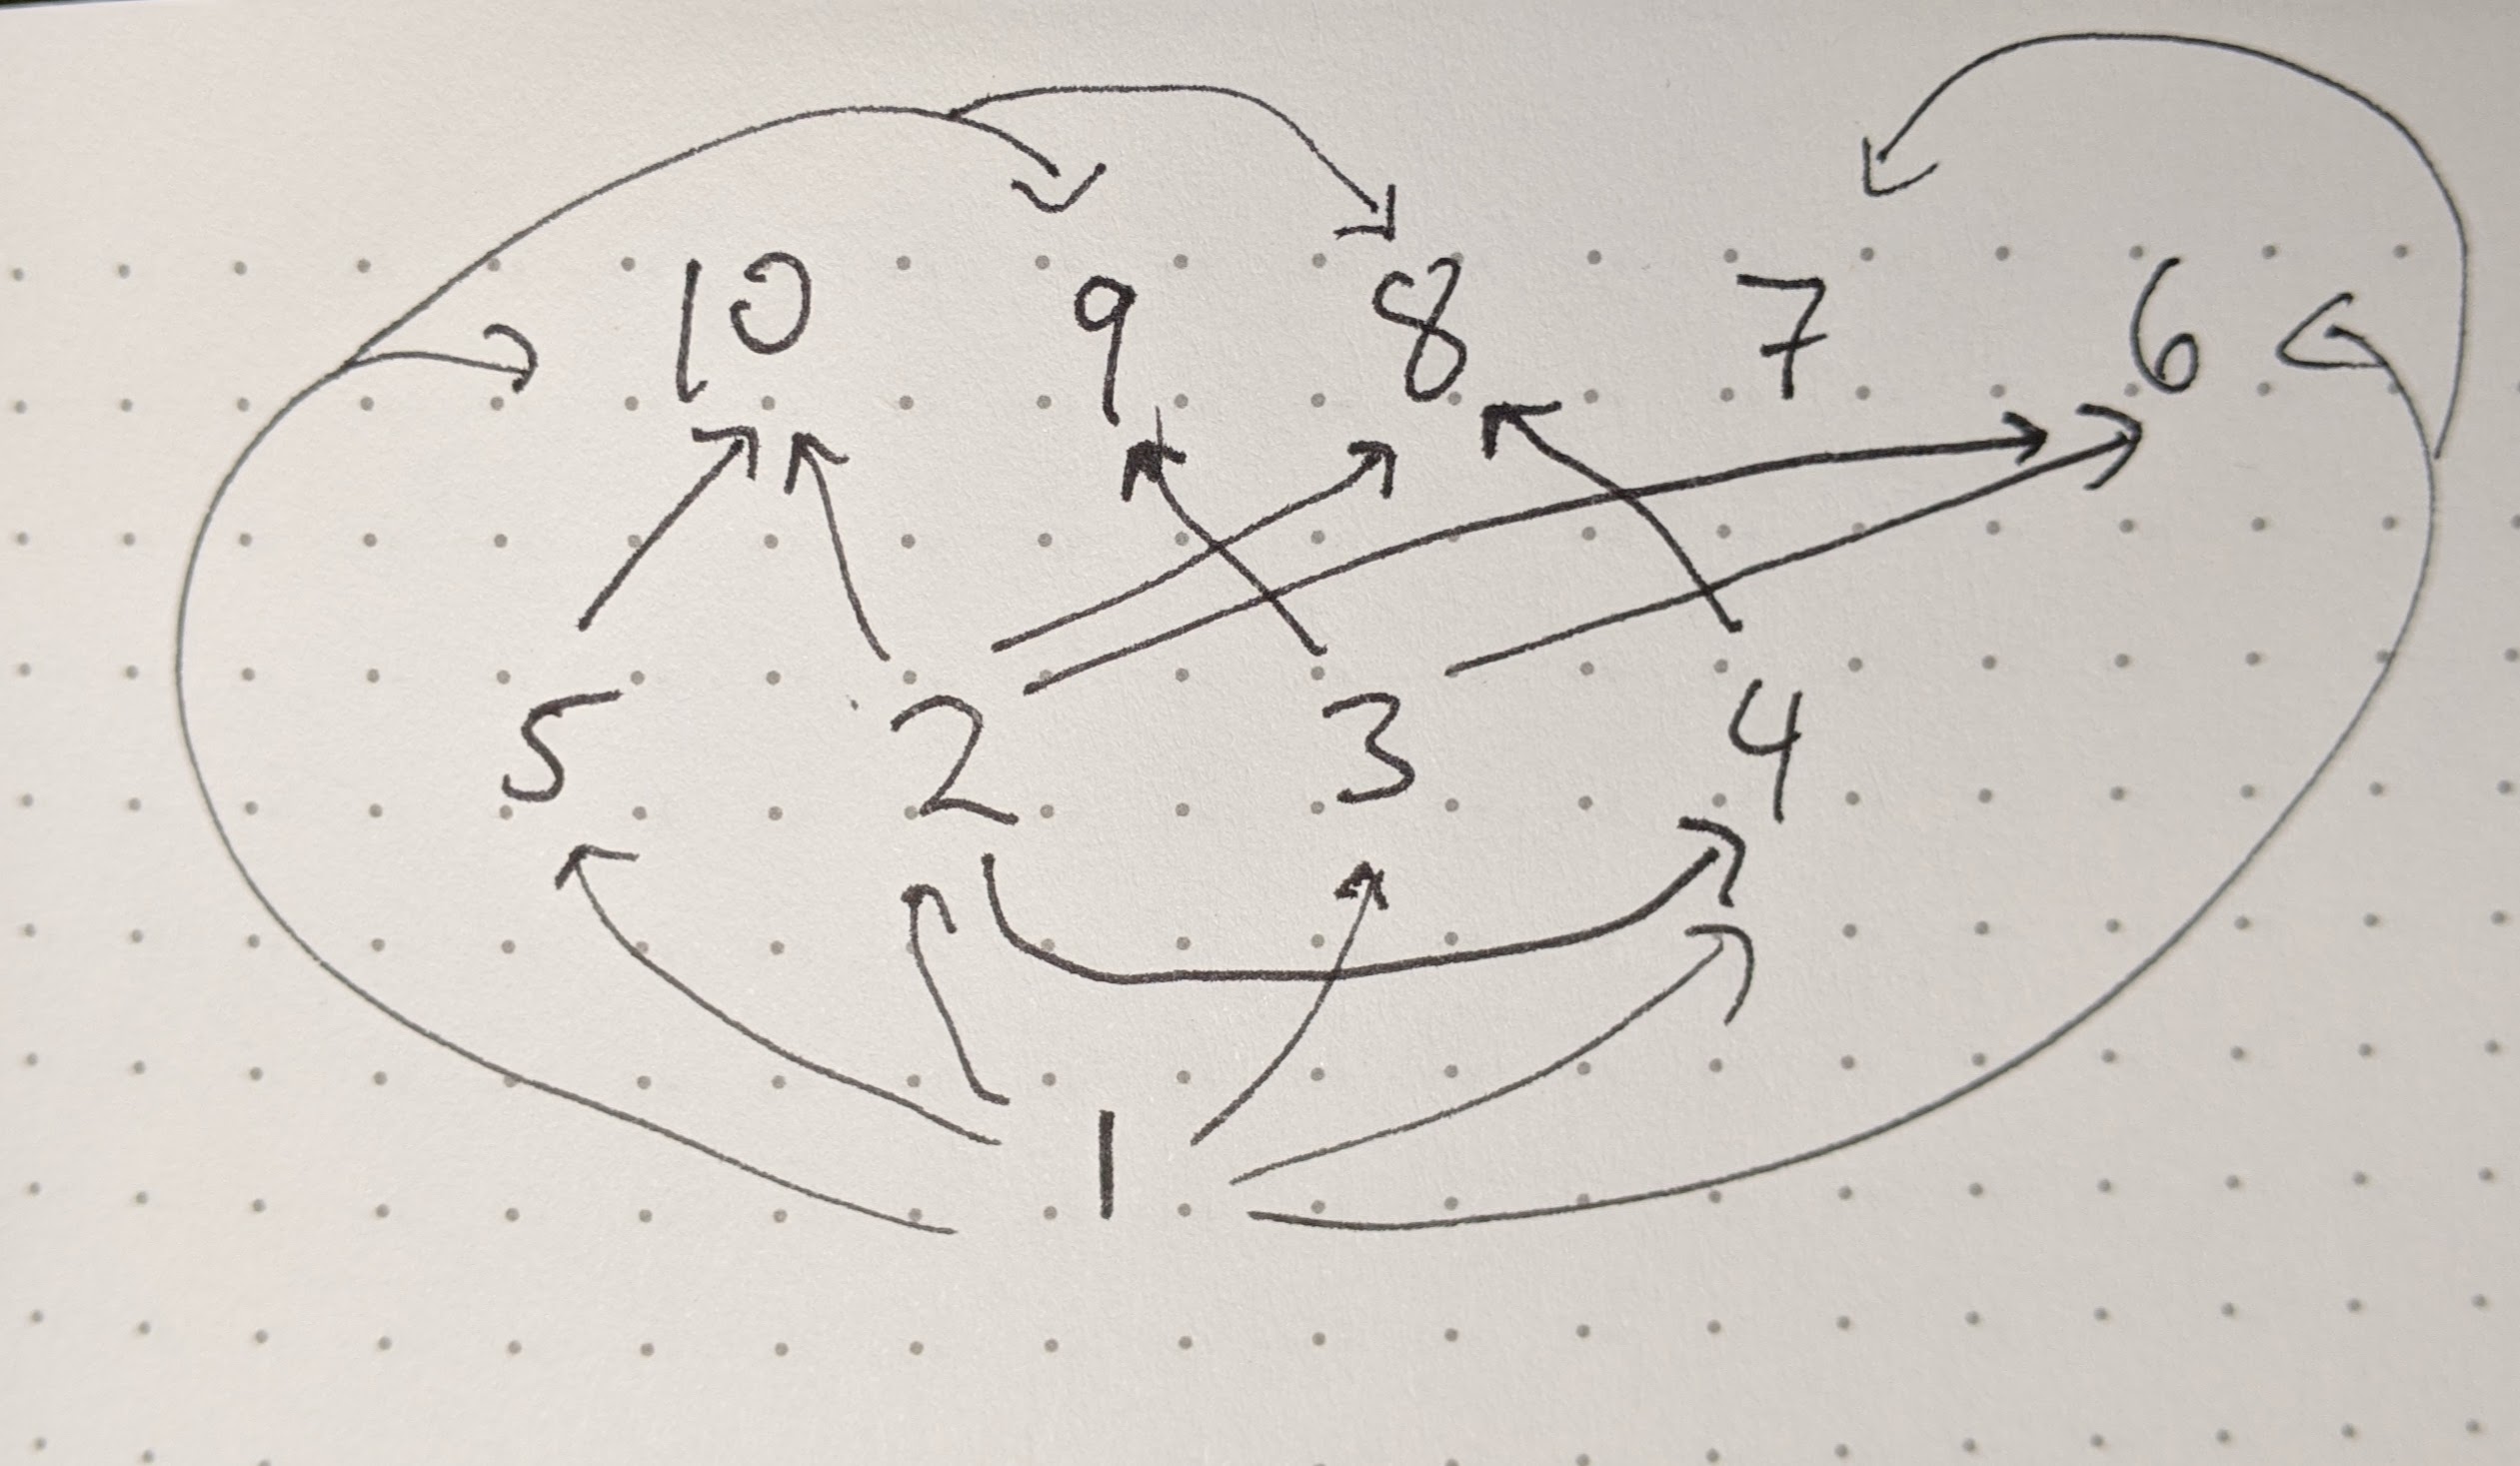 10 9 8 7 6
5 2 3 4
1